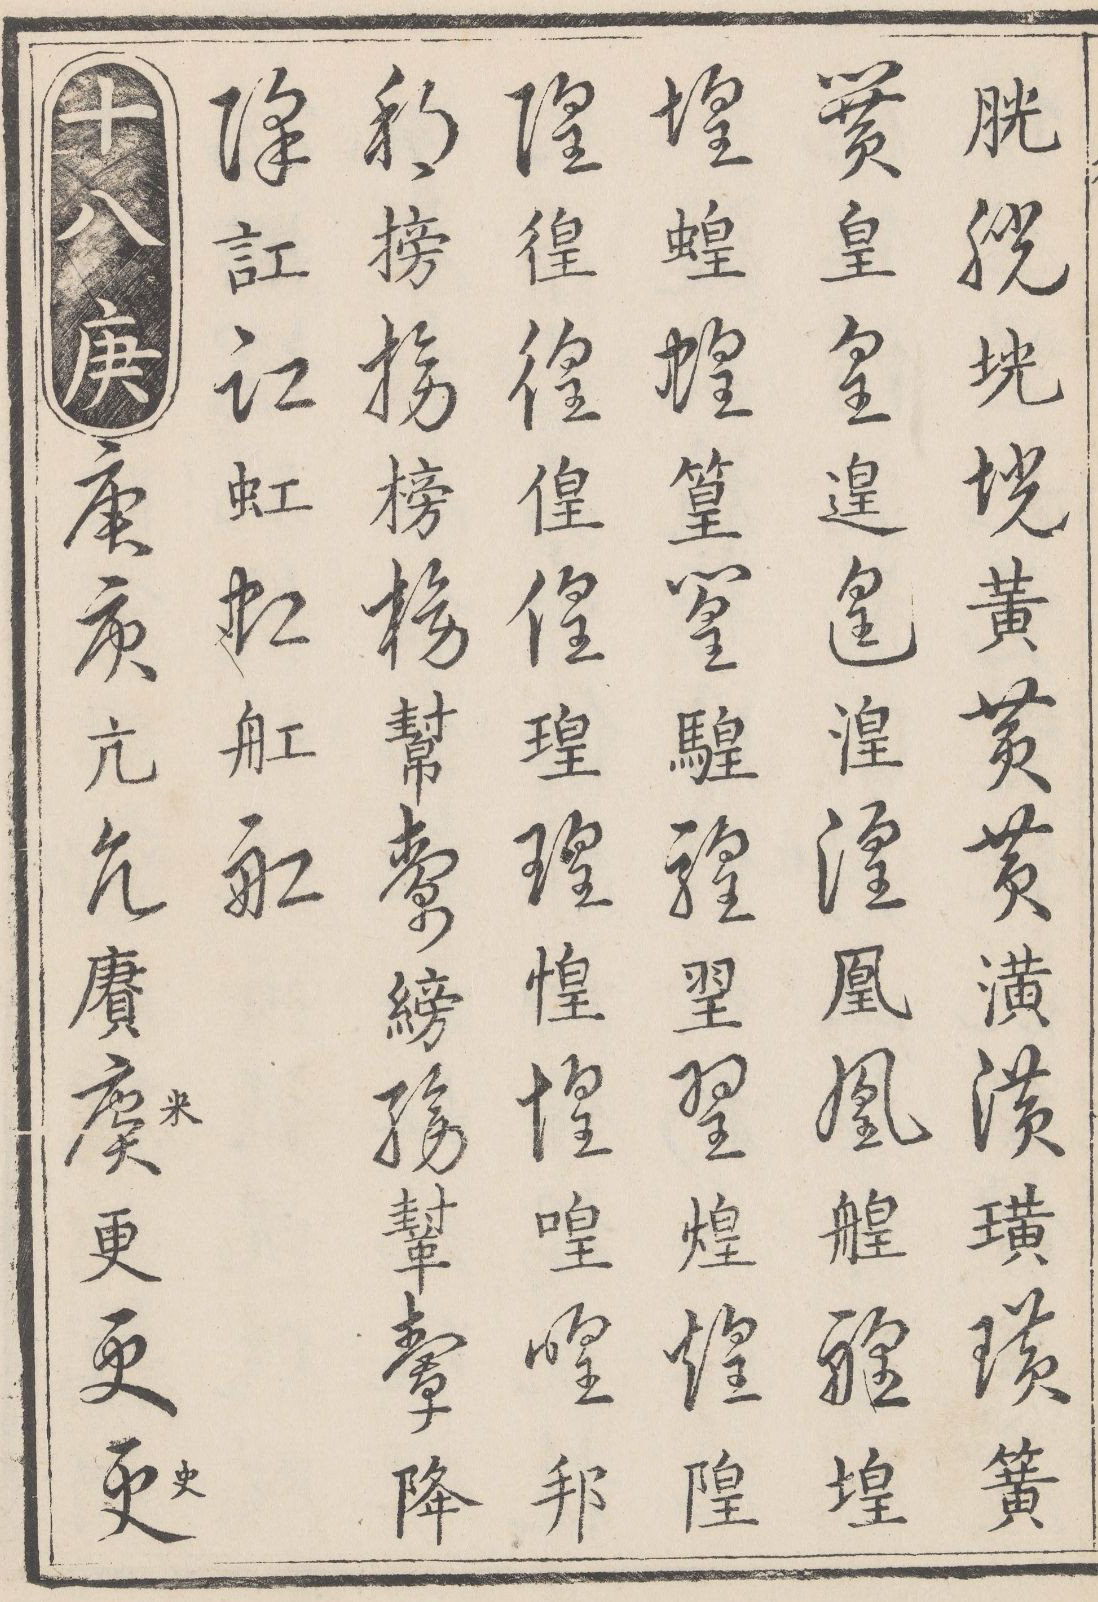 胱胱垙垙黃黃黃潢潢璜璜簧
簧皇皇遑遑湟湟凰凰艎艎堭
堭蝗蝗篁篁騜騜煌煌隍
隍徨徨偟偟瑝瑝惶惶喤喤邦
邦搒搒榜榜幫幫縍縍鞤鞤降
降訌訌虹虹舡舡
十八庚庚庚亢亢賡賡米更更更史